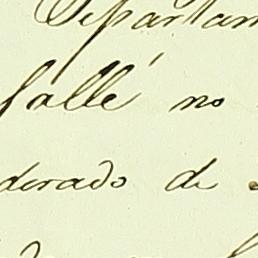 Departam
fallé no
dorado de